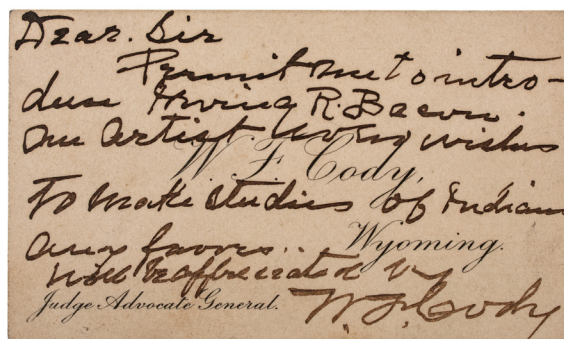 Dear. Sir
Permit me to intro-
duce Irving R. Bacon.
an artist who wishes
W. F. Cody,
to make studies of Indians
any favors..
Wyoming.
will be appreciated by
Judge Advocate General.
W. F. Cody